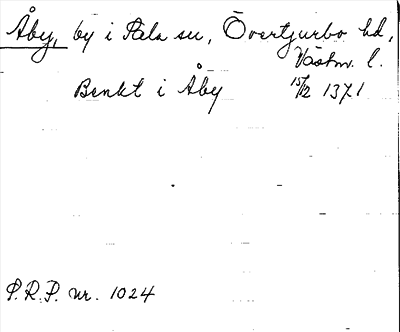 Åby, by i Sala sn, Övertjurbo hd,
Västm. l.
Benkt i Åby 15/12 1371
P.R.P. nr. 1024